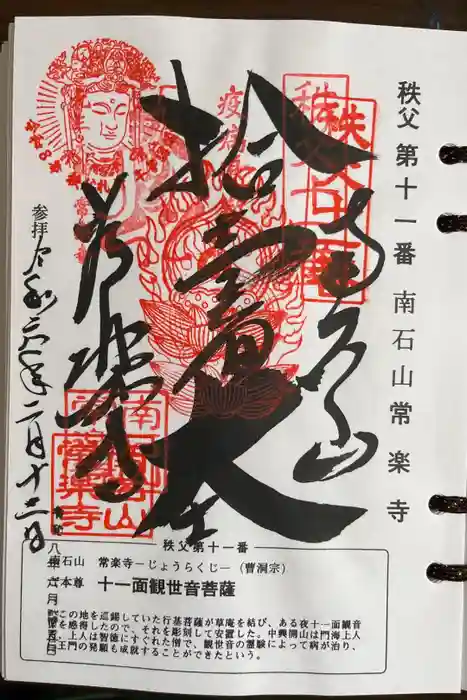 秩父 第十一番 南石山 常楽寺
秩父十一番
南石山
拾壹面大士
常楽寺
参拝 令和六年二月十二日
南石山常楽寺
秩父第十一番
南石山 常楽寺―じょうらくじ―（曹洞宗）
本尊 十一面観世音菩薩
この地を巡錫していた行基菩薩が草庵を結び、ある夜十一面観音
を感得したので、それを彫刻して安置した。中興開山は門海上人
で、上人は智徳にすぐれた僧で、観世音の霊験によって病が治り、
仁王門の発願も成就することができたという。